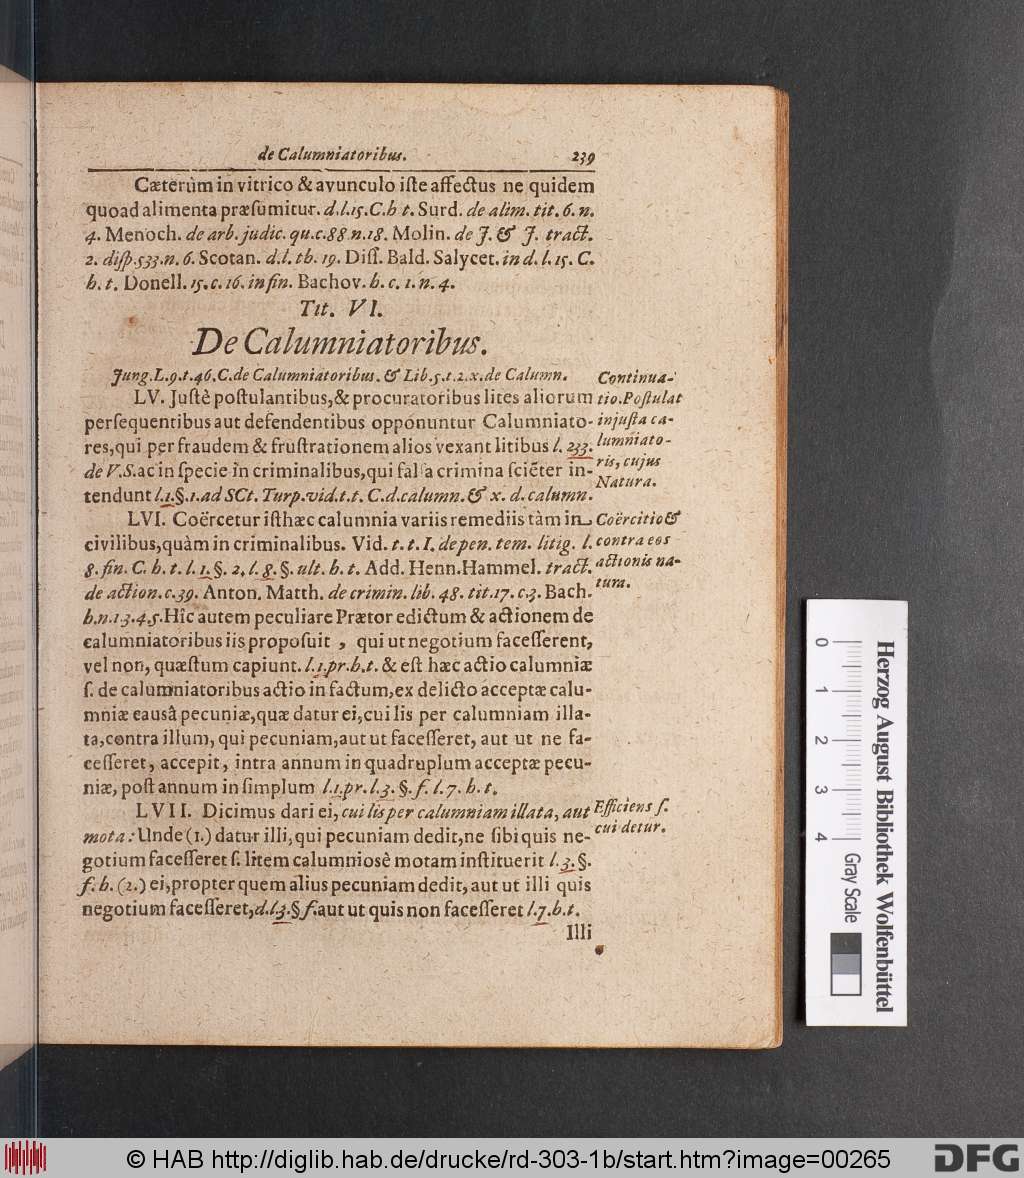 de Calumniatoribus. 239
Cæterùm in vitrico & avunculo iſte affectus ne quidem
quoad alimenta præſumitur. d.l.15.C.h t. Surd. de alim. tit. 6. n.
4. Menoch. de arb. judic. qu.c.88 n.18. Molin. de J. & J. tract.
2. diſp 533.n.6. Scotan. d.l. th. 19. Diſſ. Bald. Salycet. in d. l. 15. C.
h. t. Donell. 15.c.16. in fin. Bachov. h. c. 1. n. 4.
Tit. VI.
De Calumniatoribus.
Jung.L.9.t.46.C.de Calumniatoribus. & Lib.5.t.2.x.de Calumn.
LV. Juſtè poſtulantibus,& procuratoribus lites aliorum
perſequentibus aut defendentibus opponuntur Calumniato-
res,qui per fraudem & fruſtrationem alios vexant litibus l. 233.
de V.S. ac in ſpecie in criminalibus,qui falſa crimina ſciẽter in-
tendunt l.1.§.1.ad SCt. Turp.vid.t.t. C.d.calumn. & x. d. calumn.
Continua-
tio. Poſtulat
injuſta ca-
lumniato-
ris, cujus
Natura.
LVI. Coërcetur iſthæc calumnia variis remediis tàm in
civilibus,quàm in criminalibus. Vid. t. t. I. de pen. tem. litig. l.
8. fin. C. h. t. l. 1. §. 2. l. 8. §. ult. h. t. Add. Henn.Hammel. tract.
de action.c.39. Anton. Matth. de crimin. lib. 48. tit.17. c.3. Bach.
h.n.1 3.4.5. Hîc autem peculiare Prætor edictum & actionem de
calumniatoribus iis propoſuit , qui ut negotium faceſſerent,
vel non, quæſtum capiunt. l.1.pr.h.t. & eſt hæc actio calumniæ
ſ. de calumniatoribus actio in factum,ex delicto acceptæ calu-
mniæ cauſâ pecuniæ,quæ datur ei,cui lis per calumniam illa-
ta,contra illum, qui pecuniam,aut ut faceſſeret, aut ut ne fa-
ceſſeret, accepit, intra annum in quadruplum acceptæ pecu-
niæ, poſt annum in ſimplum l.1.pr.l.3. §. f. l. 7. h. t.
Coërcitio &
contra eos
actionis na-
tura.
LVII. Dicimus dari ei, cui lis per calumniam illata, aut
mota: Unde (1.) datur illi, qui pecuniam dedit,ne ſibi quis ne-
gotium faceſſeret ſ. litem calumniosè motam inſtituerit l. 3. §.
f. h. (2.) ei,propter quem alius pecuniam dedit, aut ut illi quis
negotium faceſſeret,d.l.3.§ f. aut ut quis non faceſſeret l.7.h.t.
Efficiens ſ.
cui detur.
Illi
0 1 2 3 4
Gray Scale
Herzog August Bibliothek Wolfenbüttel
© HAB http://diglib.hab.de/drucke/rd-303-1b/start.htm?image=00265
DFG